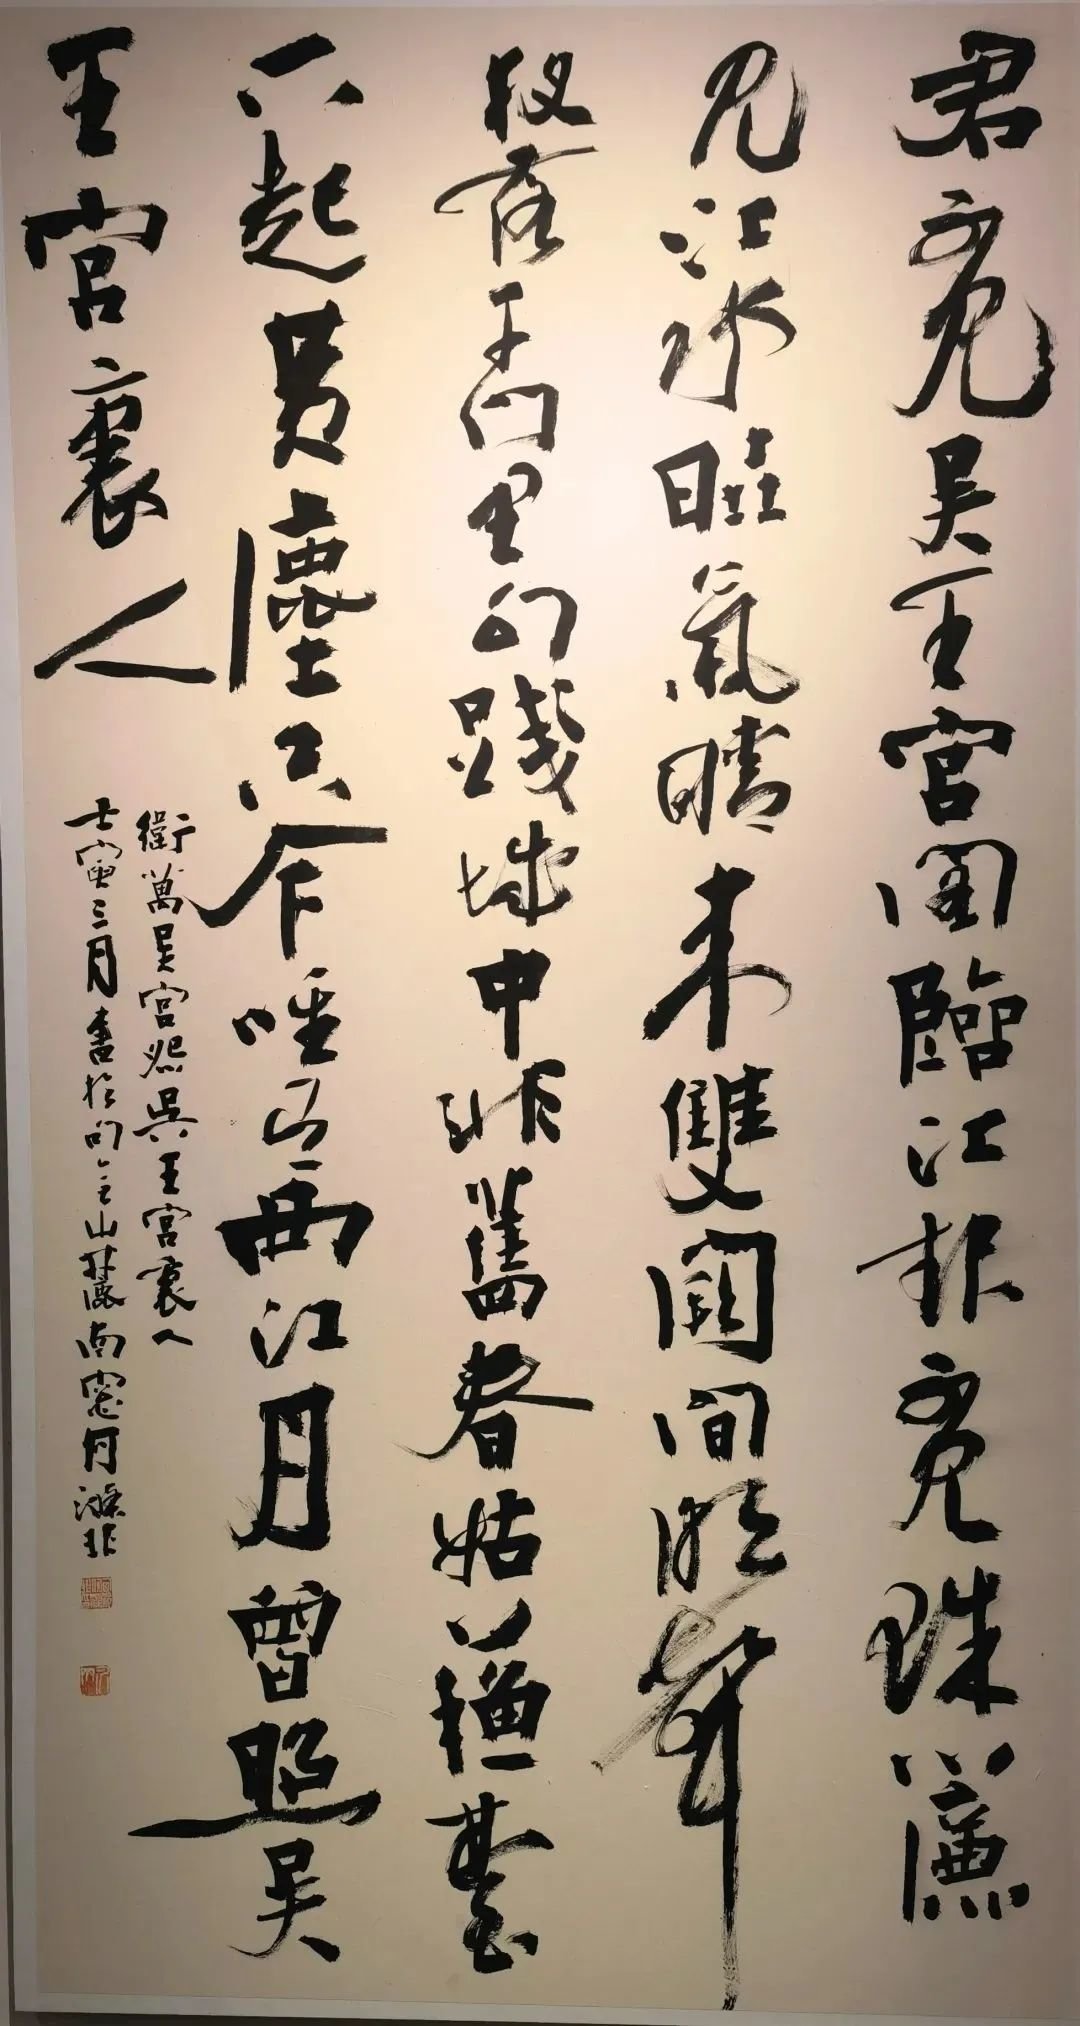 君不見吳王宮閣臨江起不見珠簾
見江水曉氣晴來雙闕間潮聲
夜落千門里勾踐城中非舊春姑蘇臺
下起黃塵只今唯有西江月曾照吳
王宮裏人
衛萬吳宮怨吳王宮裏人
壬寅三月書於山麓南窗滌非